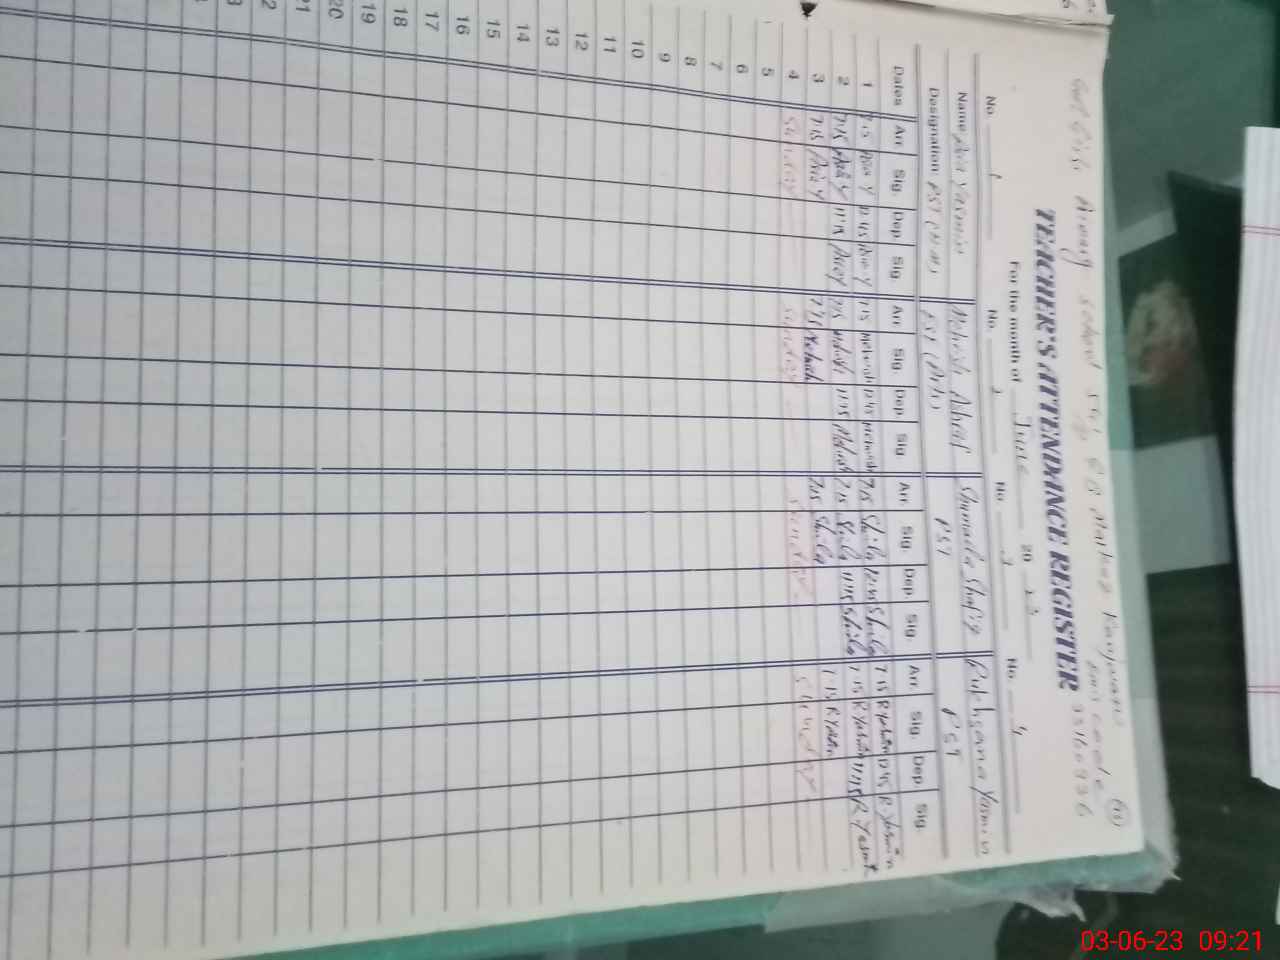 Govt Girls Primary School 591 GB Markaz Kanjwani (15)
Emis code 33160936
TEACHER'S ATTENDANCE REGISTER
For the month of June 2023
No. 1 No. 2 No. 3 No. 4
Name Asia Yasmin Mehwish Ashraf Shumaila Shafiq Rukhsana Yasmin
Designation PST PST PST PST
Dates Arr. Sig. Dep. Sig. Arr. Sig. Dep. Sig. Arr. Sig. Dep. Sig. Arr. Sig. Dep. Sig.
1 7:15 Asia Y 12:45 Asia Y 7:15 Mehwish 12:45 Mehwish 7:15 Shaila 12:45 Shaila 7:15 R Yasmin 12:45 R. Yasmin
2 7:15 Asia Y 11:15 Asia Y 7:15 Mehwish 11:15 Mehwish 7:15 Shaila 11:15 Shaila 7:15 R Yasmin 11:15 R Yasmin
3 7:15 Asia Y 7:15 Mehwish 7:15 Shaila 7:15 R Yasmin
4 Sunday Sunday Sunday Sunday
5
6
7
8
9
10
11
12
13
14
15
16
17
18
19
20
21
03-06-23 09:21